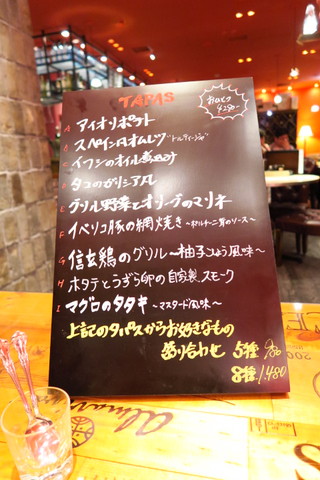 TAPAS
おひとつ
¥280-
A アイオリポテト
スペイン風オムレツ "トルティージャ"
イワシのオイル煮込み
タコのガリシア風
E グリル野菜とオリーブのマリネ
F イベリコ豚の網焼き ~ポルチーニ茸のソース~
G 信玄鶏のグリル ~柚子こしょう風味~
H ホタテとうずら卵の自家製スモーク
I マグロのタタキ ~マスタード風味~
上記のタパスからお好きなもの
盛り合わせ 5種 980
8種 1,480